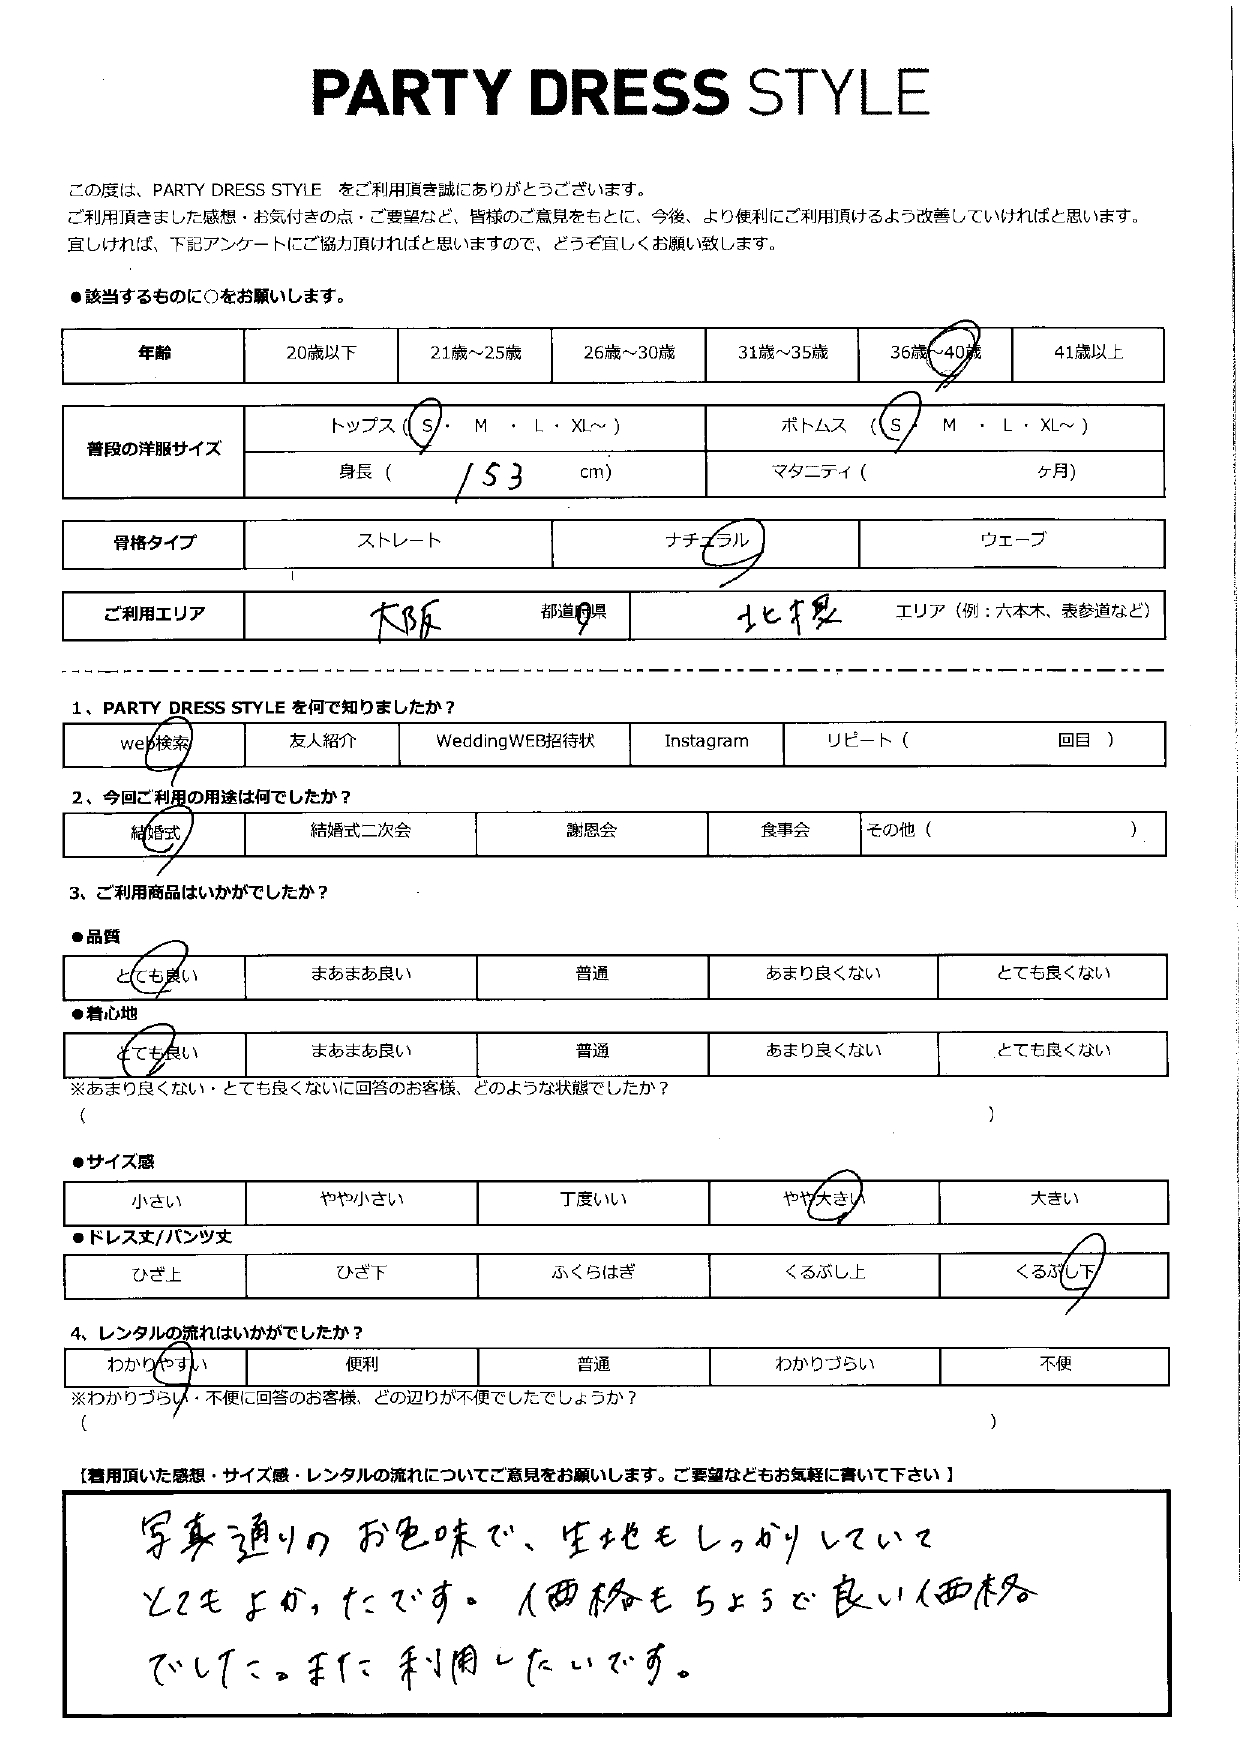 PARTY DRESS STYLE
この度は、PARTY DRESS STYLE をご利用頂き誠にありがとうございます。
ご利用頂きました感想・お気付きの点・ご要望など、皆様のご意見をもとに、今後、より便利にご利用頂けるよう改善していければと思います。
宜しければ、下記アンケートにご協力頂ければと思いますので、どうぞ宜しくお願い致します。
●該当するものに○をお願いします。
年齢 20歳以下 21歳～25歳 26歳～30歳 31歳～35歳 36歳～40歳 41歳以上
普段の洋服サイズ トップス ( S ・ M ・ L ・ XL～ ) ボトムス ( S ・ M ・ L ・ XL～ )
身長 ( 153 cm) マタニティ ( ヶ月)
骨格タイプ ストレート ナチュラル ウェーブ
ご利用エリア 大阪 都道府県 北摂 エリア（例：六本木、表参道など）
1、PARTY DRESS STYLE を何で知りましたか？
web検索 友人紹介 WeddingWEB招待状 Instagram リピート（ 回目 ）
2、今回ご利用の用途は何でしたか？
結婚式 結婚式二次会 謝恩会 食事会 その他（ ）
3、ご利用商品はいかがでしたか？
●品質
とても良い まあまあ良い 普通 あまり良くない とても良くない
●着心地
とても良い まあまあ良い 普通 あまり良くない とても良くない
※あまり良くない・とても良くないに回答のお客様、どのような状態でしたか？
（ ）
●サイズ感
小さい やや小さい 丁度いい やや大きい 大きい
●ドレス丈/パンツ丈
ひざ上 ひざ下 ふくらはぎ くるぶし上 くるぶし下
4、レンタルの流れはいかがでしたか？
わかりやすい 便利 普通 わかりづらい 不便
※わかりづらい・不便に回答のお客様、どの辺りが不便でしたでしょうか？
（ ）
【着用頂いた感想・サイズ感・レンタルの流れについてご意見をお願いします。ご要望などもお気軽に書いて下さい 】
写真通りの お色味で、生地もしっかりしていて
とてもよかったです。価格もちょうど良い価格
でした。また利用したいです。